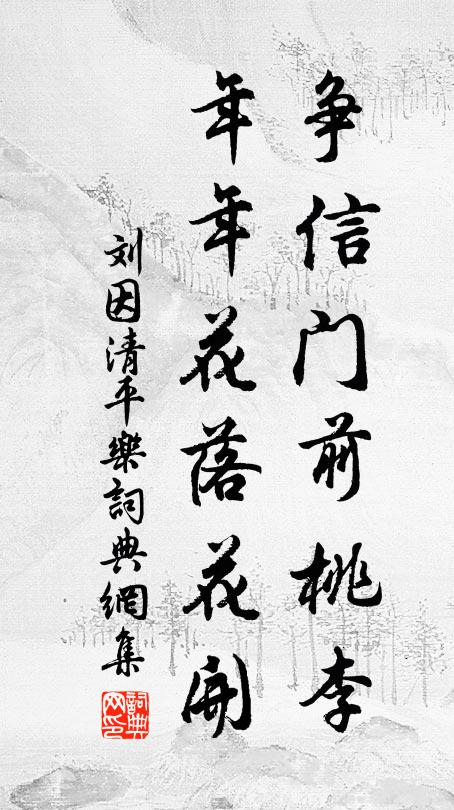 争信门前桃李
年年花落花开
刘因清平樂詞典網集
詞典网印